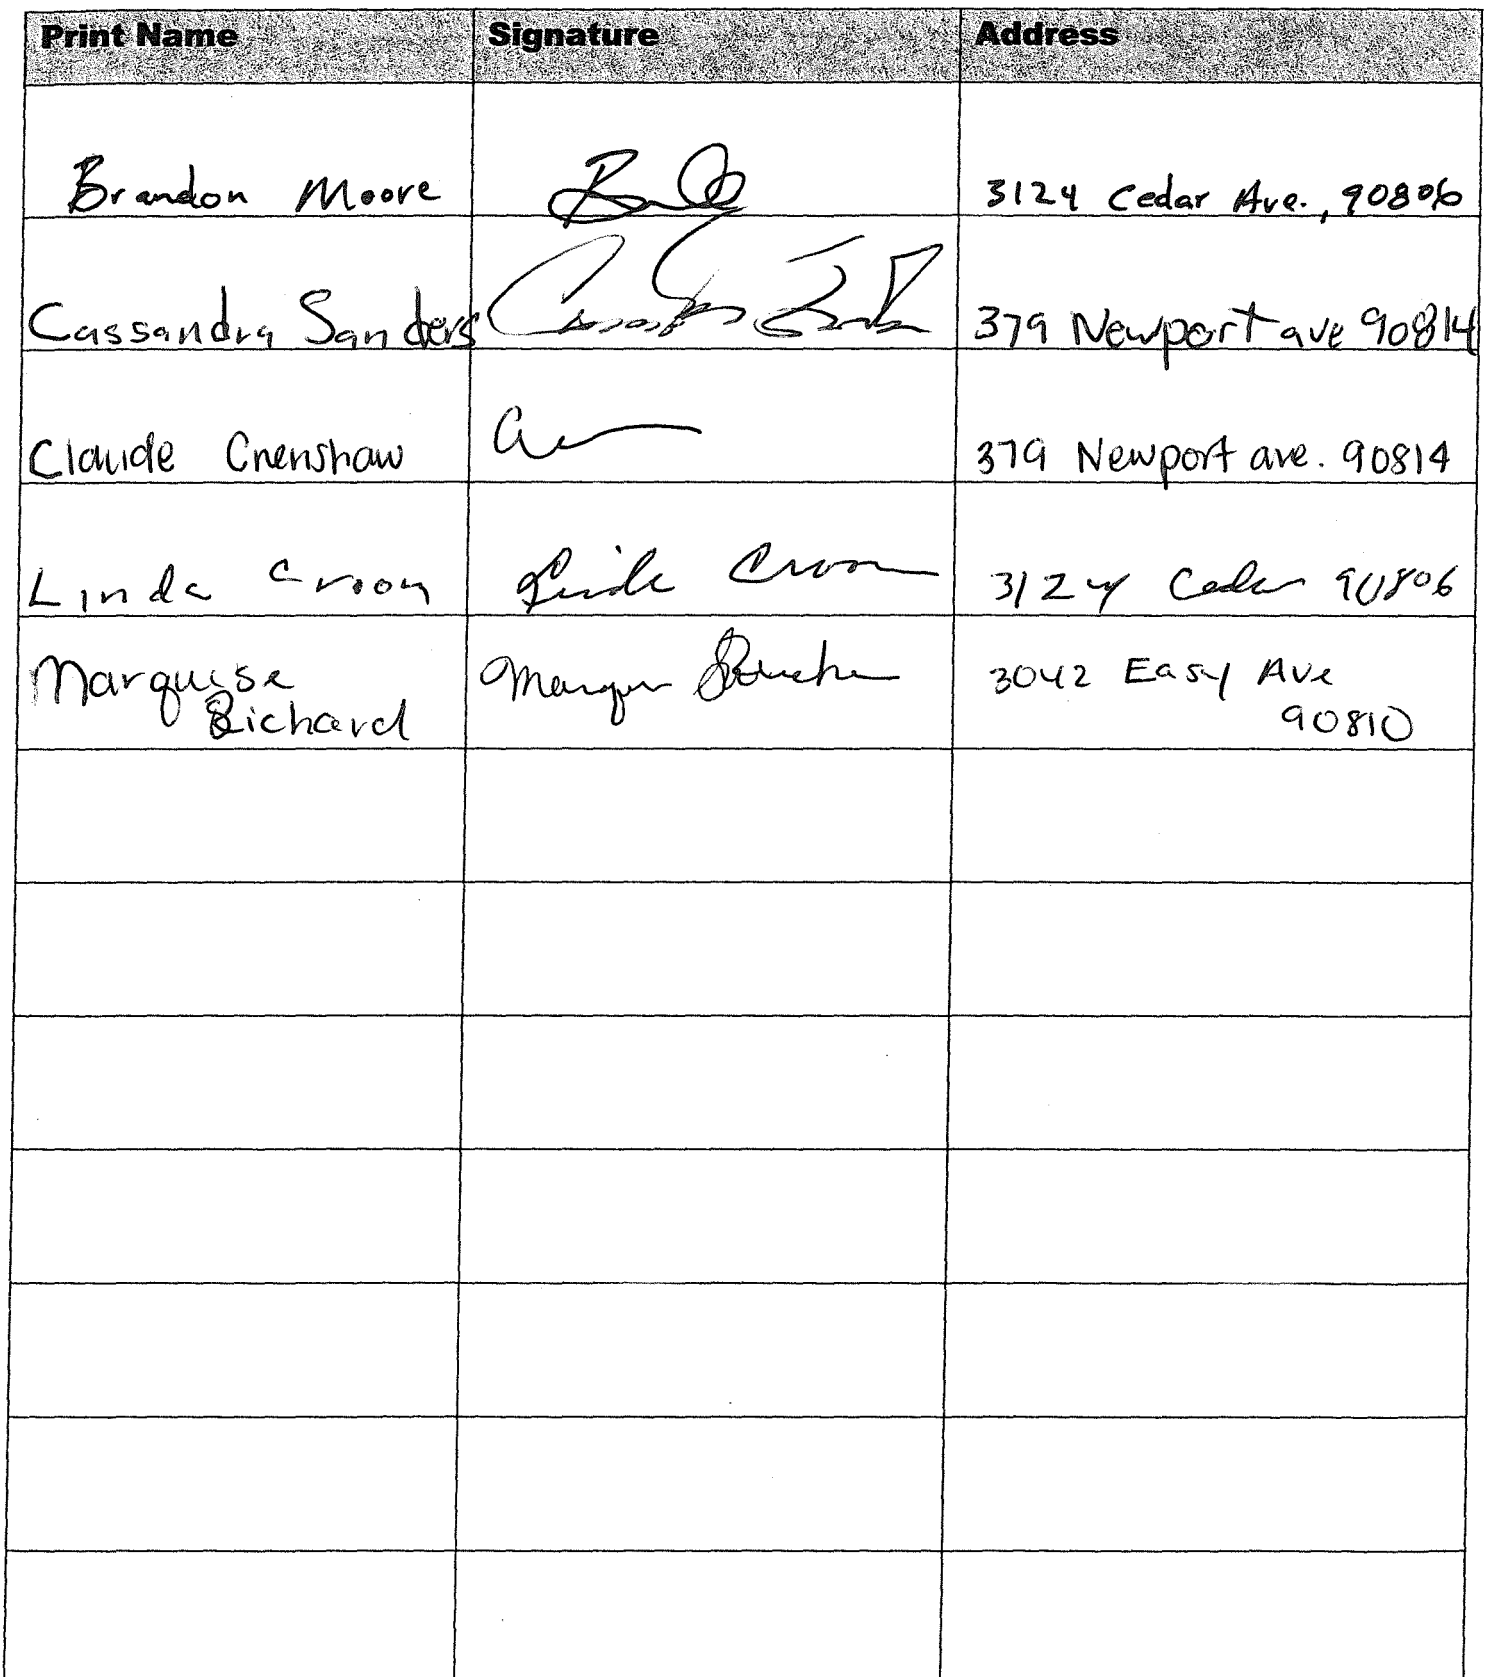 Print Name Signature Address
Brandon Moore 3124 Cedar Ave., 90806
Cassandra Sanders 379 Newport ave 90814
Claude Crenshaw 379 Newport ave. 90814
Linda Croom Linda Croom 3124 Cedar 90806
Marquise 3042 Easy Ave
Richard 90810